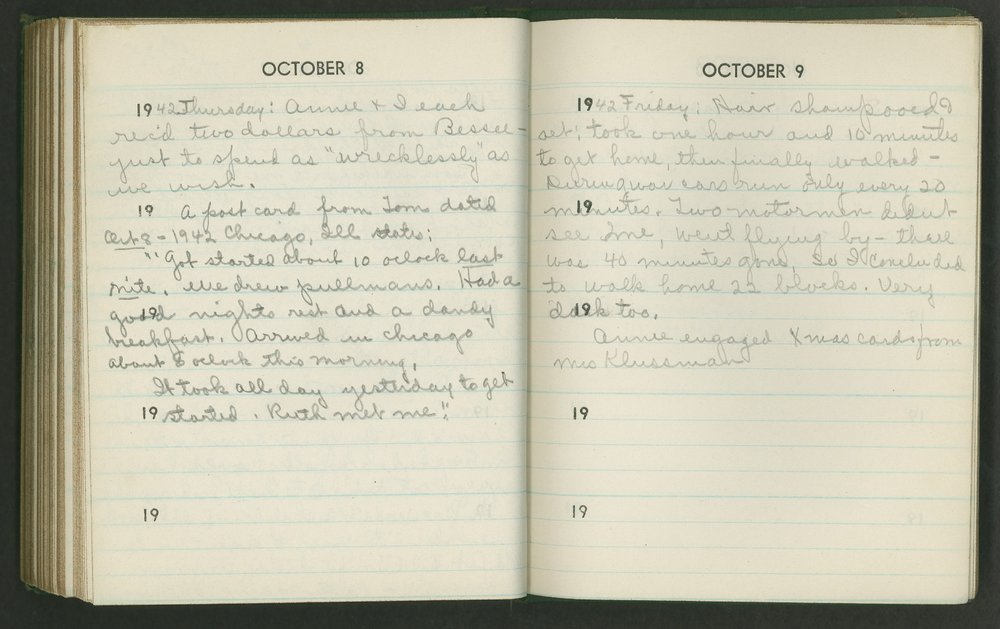 OCTOBER 8
1942 Thursday: Annie & I each
rec'd two dollars from Bessee -
just to spend as "wrecklessly" as
we wish.
19 A post card from Tom dated
Oct 8 - 1942 Chicago, Ill states;
"Got started about 10 oclock last
nite. We drew pullmans. Had a
good nights rest and a dandy
19
breakfast. Arrived in Chicago
about 8 oclock this morning.
It took all day yesterday to get
19 started. Ruth met me".
19
OCTOBER 9
1942 Friday: Hair shampooed &
set; took one hour and 10 minutes
to get home, then finally walked -
During war cars run only every 20
19 minutes. Two motormen didn't
see me, went flying by - there
was 40 minutes gone, so I concluded
to walk home 22 blocks. Very
19 dark too.
Annie engaged Xmas cards from
Mrs Klussman
19
19